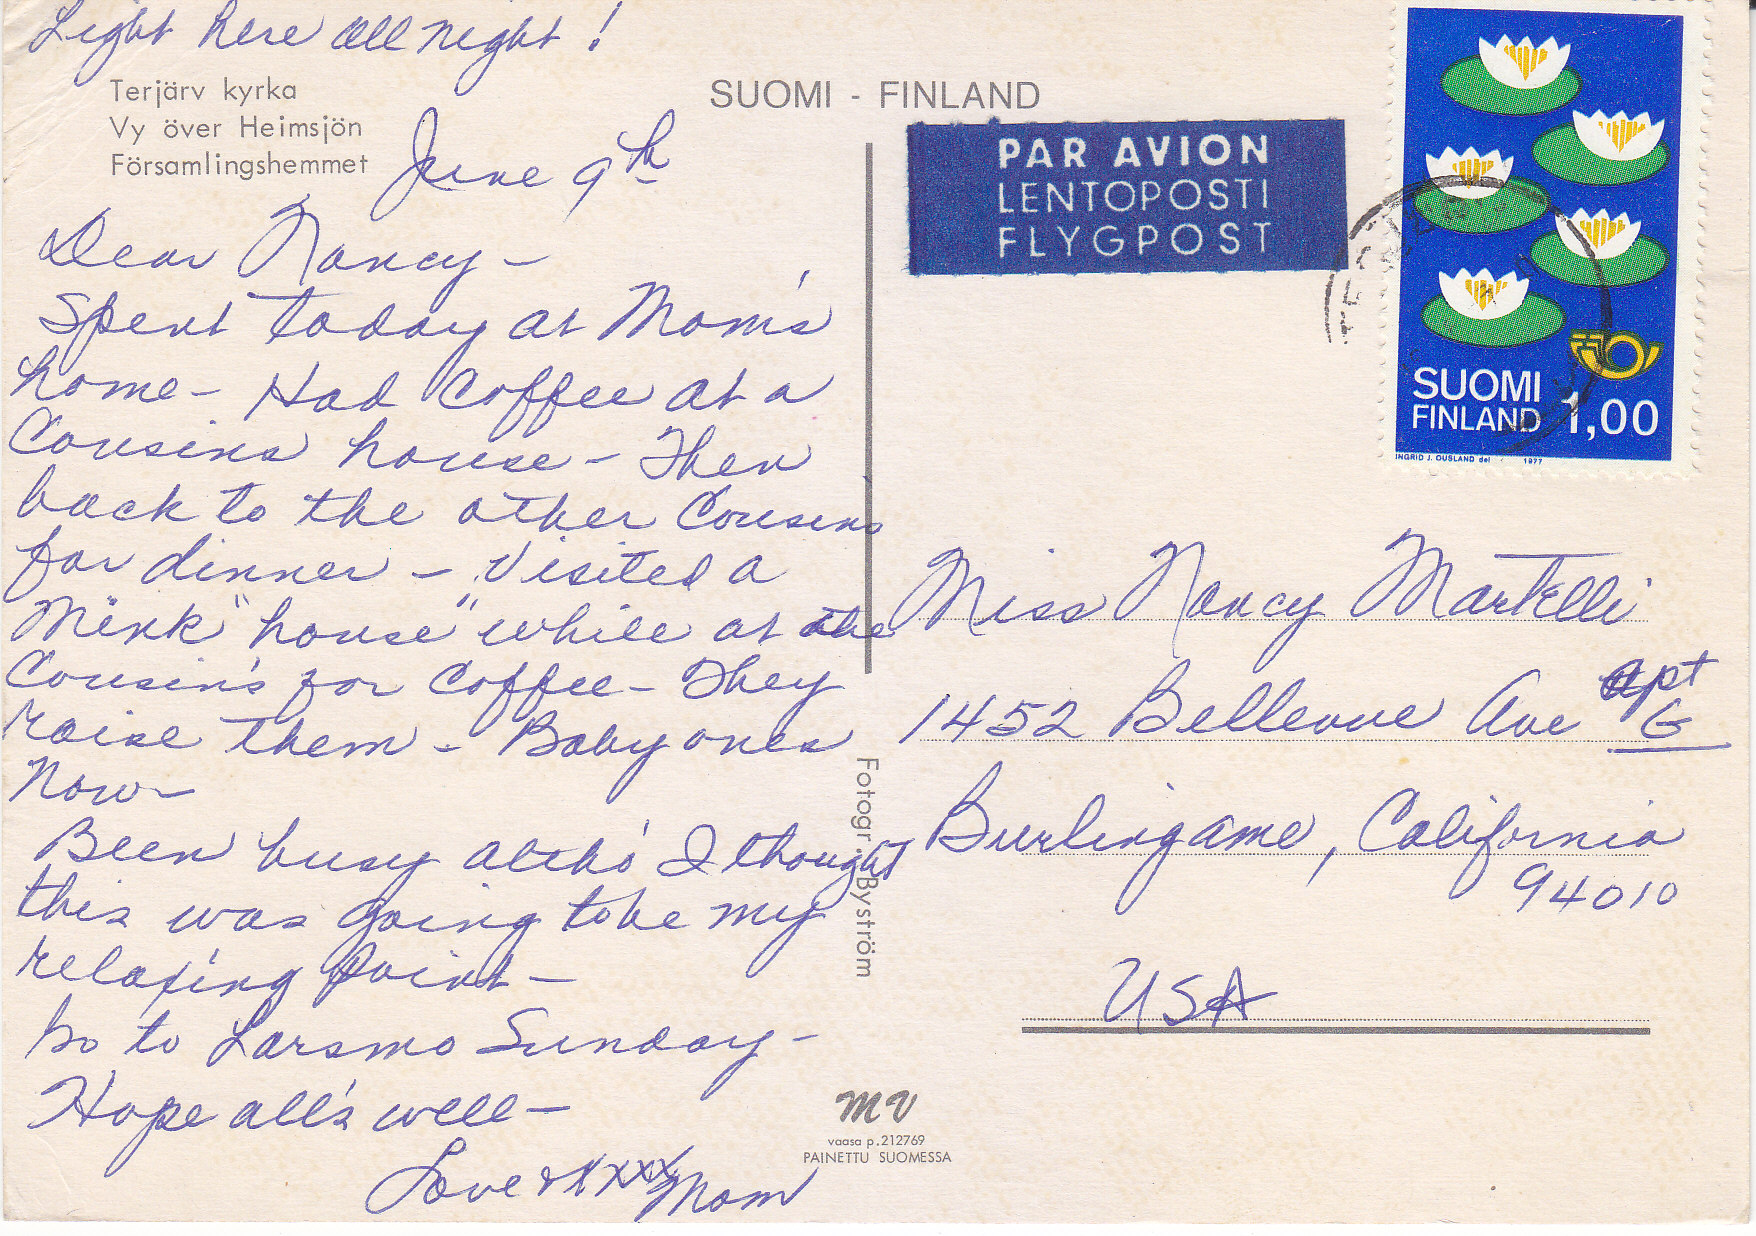 Light here all night!
Terjärv kyrka
Vy över Heimsjön
Församlingshemmet
June 9th
Dear Nancy -
Spent today at Mom's
home - Had Coffee at a
Cousins house - Then
back to the other Cousins
for dinner - Visited a
Mink "house" while at the
Cousin's for Coffee - They
raise them - Baby ones
Now -
Been busy altho' I thought
this was going to be my
relaxing point -
Go to Larsmo Sunday -
Hope all's well -
Love & XXXX Mom
SUOMI - FINLAND
PAR AVION
LENTOPOSTI
FLYGPOST
SUOMI
FINLAND 1,00
INGRID J. OUSLAND del 1977
Miss Nancy Martelli
1452 Bellevue Ave apt
G
Burlingame, California
94010
USA
Fotogr. Byström
MV
vaasa p.212769
PAINETTU SUOMESSA